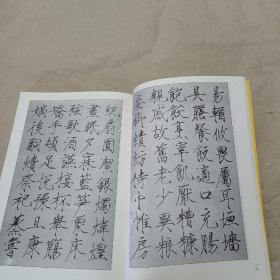 易輶攸畏屬耳垣墻
具膳飡飯適口充腸
飽飫烹宰飢厭糟糠
親戚故舊老少異粮
妾御績紡侍巾帷房
紈扇圓潔銀燭煒煌
晝眠夕寐藍笋象床
弦歌酒讌接杯舉觴
矯手頓足悅豫且康
嫡後嗣續祭祀蒸嘗